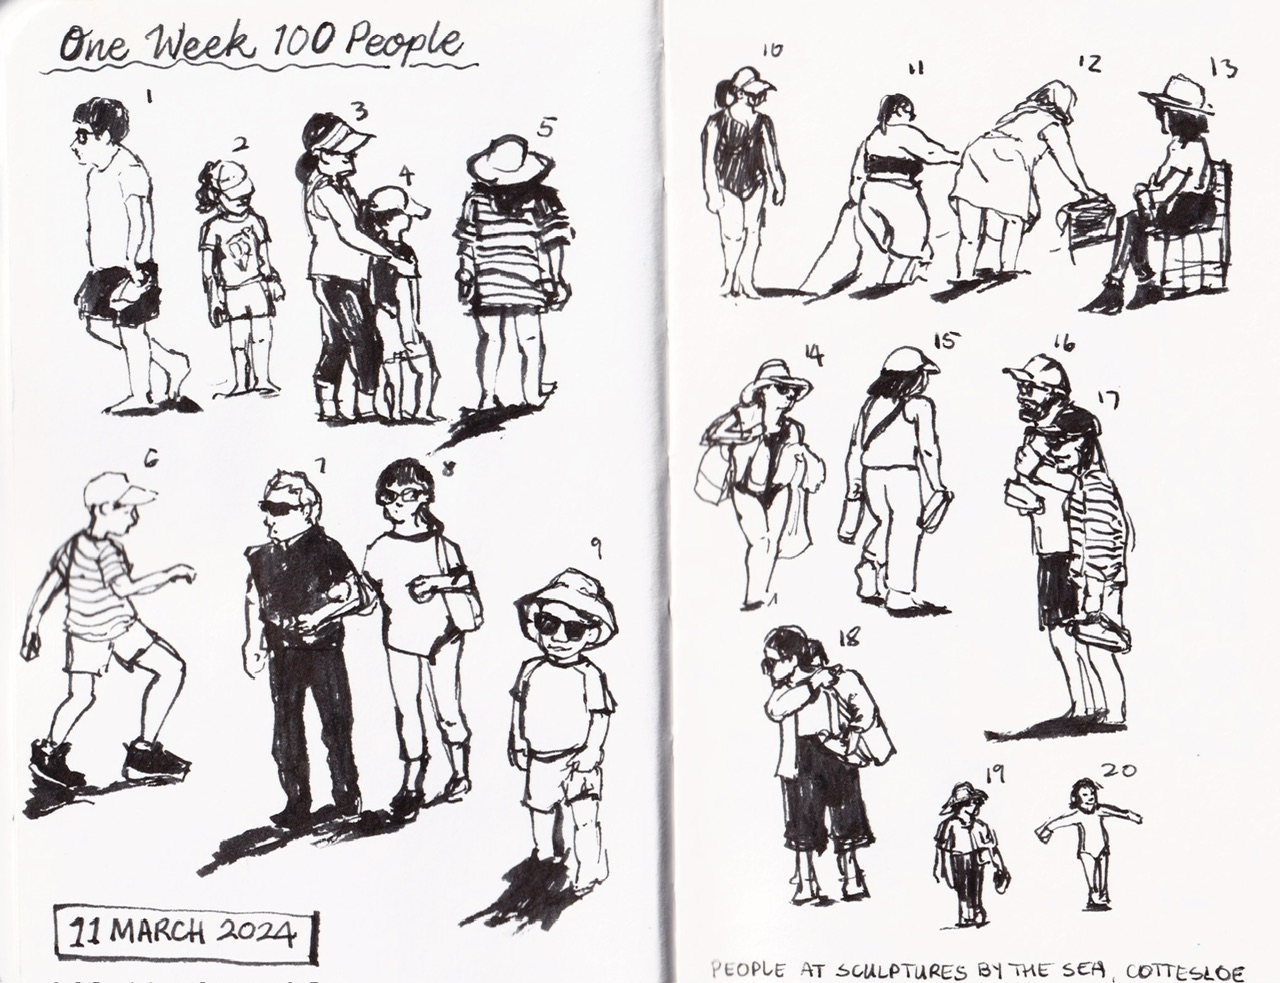 One Week 100 People
1
2
3
4
5
6
7
8
9
11 MARCH 2024
10
11
12
13
14
15
16
17
18
19
20
PEOPLE AT SCULPTURES BY THE SEA, COTTESLOE